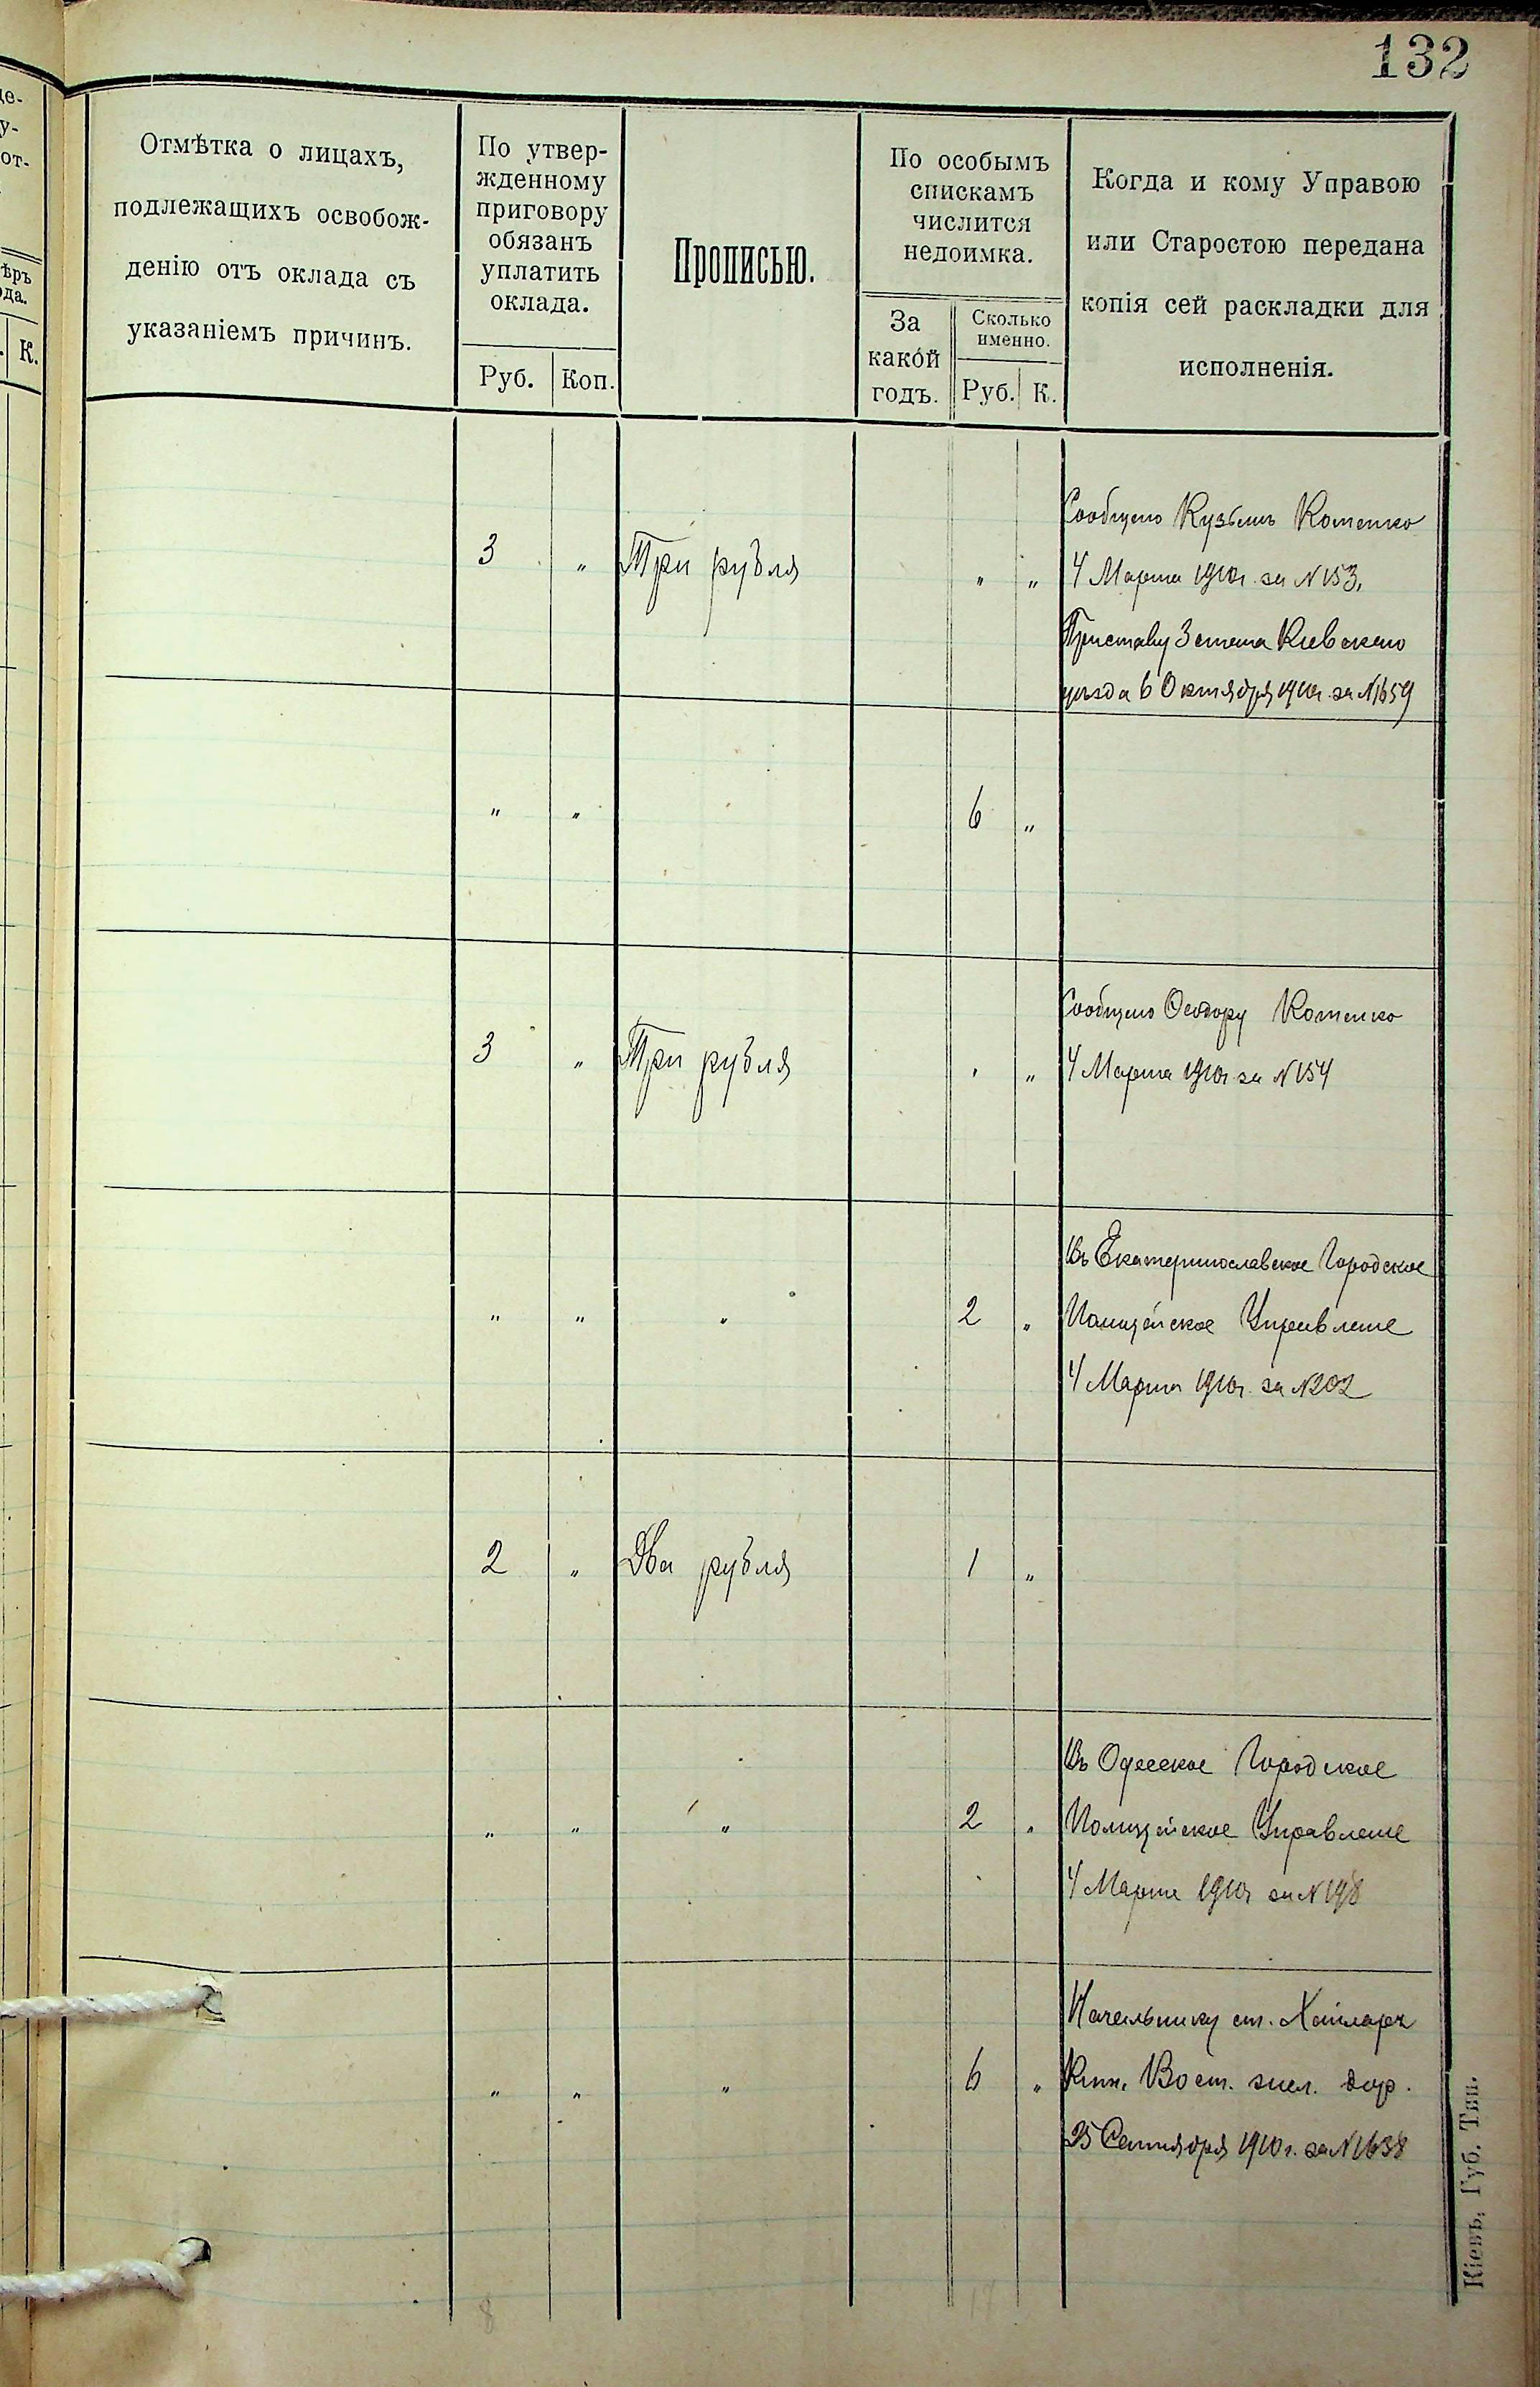 132
Отмѣтка о лицахъ,
подлежащихъ освобож-
денію отъ оклада съ
указаніемъ причинъ.
По утвер-
жденному
приговору
обязанъ
уплатить
оклада.
Руб. Коп.
Прописью.
По особымъ
спискамъ
числится
недоимка.
За
какой
годъ.
Сколько
именно.
Руб. К.
Когда и кому Управою
или Старостою передана
копія сей раскладки для
исполненія.
К.
3 „ Три рубля „ „
Сообщено Кузьмѣ Котенко
4 Марта 1910г. за N 153,
Приставу 3 стана Кіевскаго
уѣзда 6 Октября 1910г. за N 1659
„ „ 6 „
3 „ Три рубля „ „
Сообщено Ѳеодору Котенко
4 Марта 1910г за N 154
„ „ „ 2 „
Въ Екатеринославское Городское
Полицейское Управленіе
4 Марта 1910г. за N 202
2 „ Два рубля 1 „
„ „ „ 2 „
Въ Одесское Городское
Полицейское Управленіе
4 Марта 1910г за N 198
„ „ „ 6 „
Начальнику ст. Хайларъ
Кит. Вост. жел. дор.
25 Сентября 1910г. за N 1638
8 17
Кіевъ, Губ. Тип.